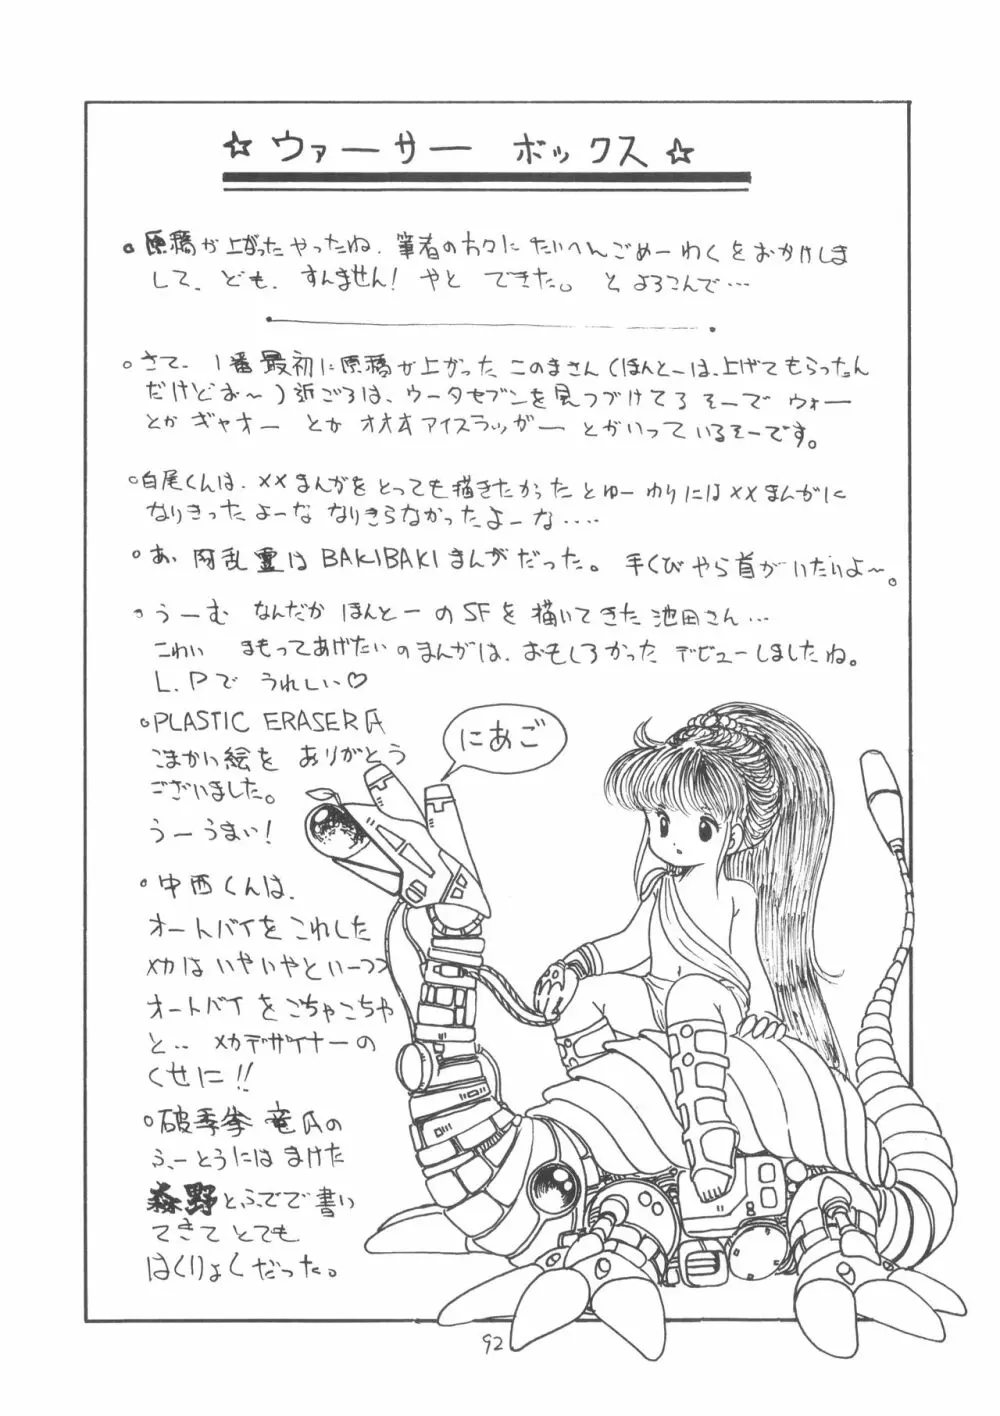 ☆ ウァーサー ボックス ☆
。原稿が上がったやったね、筆者の方々にたいへんごめーわくをおかけしま
して、ども、すんません! やと できた。 とよろこんで…
。さて、1番最初に原稿が上がった このまさん(ほんとーは、上げてもらったん
だけどお〜)近ごろは、ウータセブンを見つづけてるそーで ウォー
とかギャオー とか オオオアイスラッガー とかいっているそーです。
。白尾くんは、××まんがをとっても描きたかったとゆーわりには××まんがに
なりきったよーな なりきらなかったよーな‥‥
。あ、阿乱霊はBAKIBAKIまんがだった。 手くびやら首がいたいよ〜。
。うーむ なんだか ほんとーのSFを描いてきた池田さん…
こわい まもってあげたいのまんがは、おもしろかった デビューしましたね。
L.Pで うれしい♡
。PLASTIC ERASER氏
こまかい絵を ありがとう
ございました。
うーうまい!
にあご
。中西くんは、
オートバイをこわした
メカはいやいやといーつつ
オートバイをごちゃこちゃ
と‥ メカデザイナーの
くせに!!
。破季拳 竜氏の
ふーとうには まけた
森野とふでで書い
てきてとても
はくりょくだった。
92